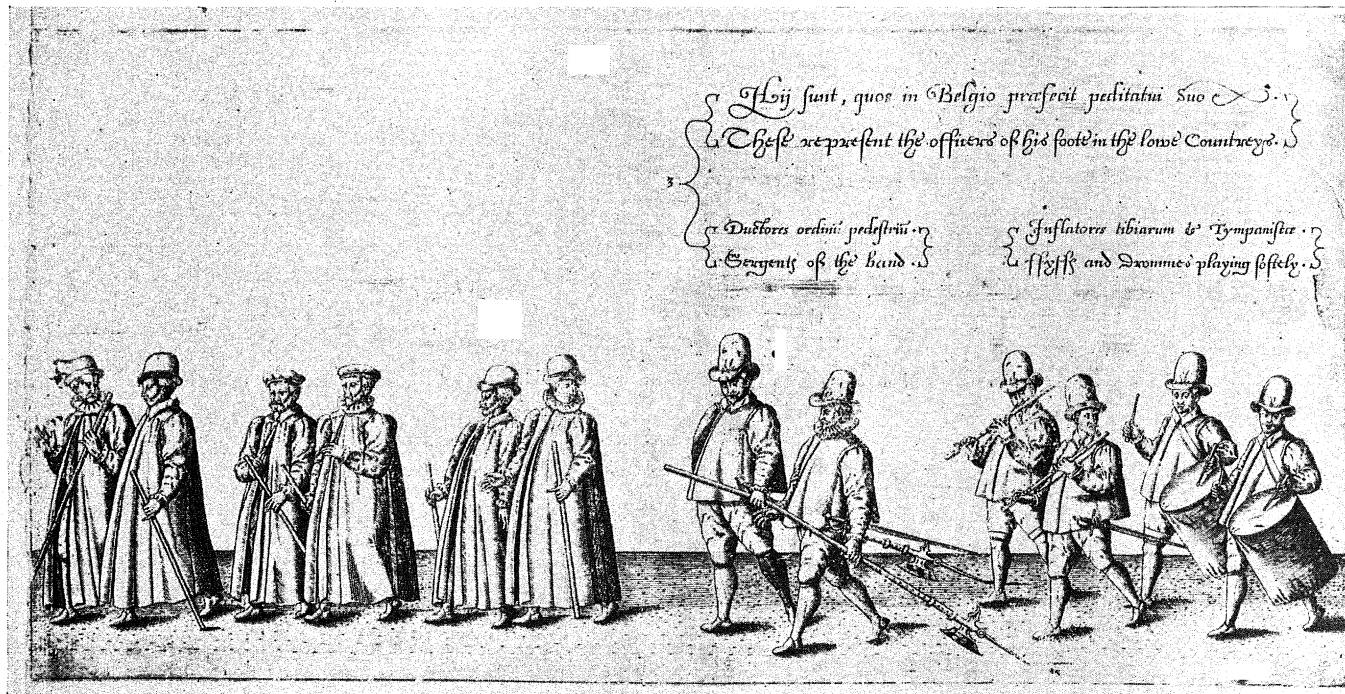 Hij sunt, quos in Belgio præfecit peditatui suo
These represent the officers of his foote in the lowe Countreys.
3
Ductores ordinū pedestriū.
Sergents of the band.
Inflatores tibiarum & Tympanistæ.
ffyffs and Drommes playing softely.